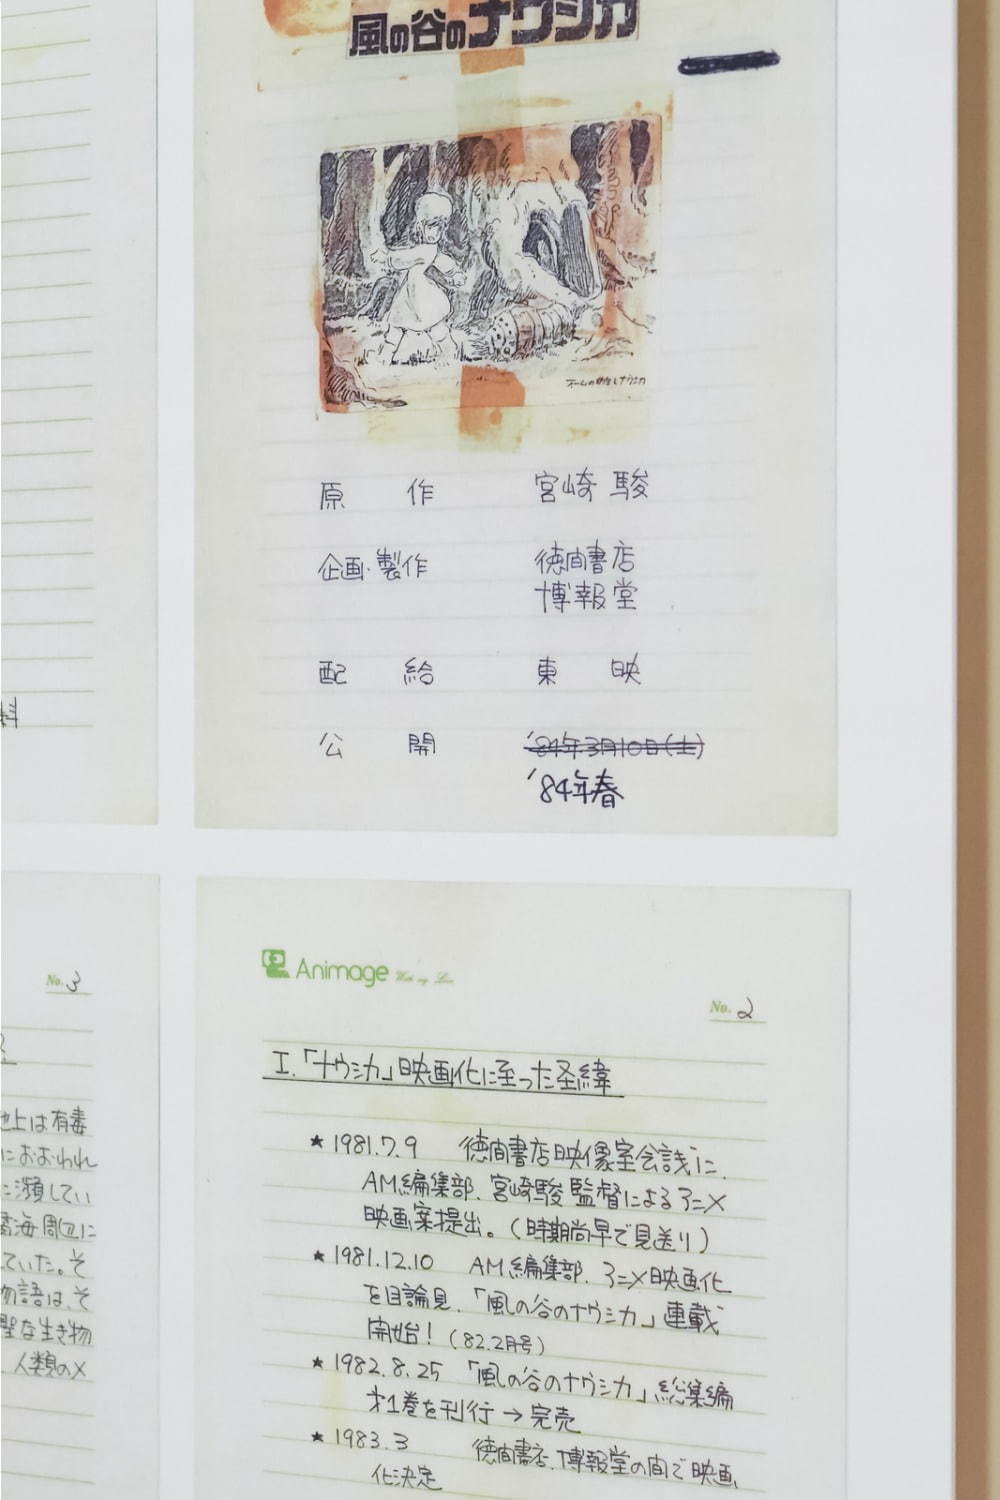 風の谷のナウシカ
原 作 宮崎 駿
企画・製作 徳間書店
博報堂
配 給 東 映
公 開 '84年3月10日(土)
'84年春
料
Animage With my Love
No. 2
I.「ナウシカ」映画化に至った経緯
★ 1981.7.9 徳間書店映像室会議に、
AM編集部、宮崎駿監督によるアニメ
映画案提出。(時期尚早で見送り)
★ 1981.12.10 AM編集部、アニメ映画化
を目論見、「風の谷のナウシカ」連載
開始!(82.2月号)
★ 1982.8.25 「風の谷のナウシカ」総集編
才1巻を刊行→完売
★ 1983.3 徳間書店、博報堂の間で映画
化決定
No. 3
地上は有毒
におおわれ
に瀕してい
海周辺に
ていた。そ
物語は、そ
聖な生き物
人類のメ